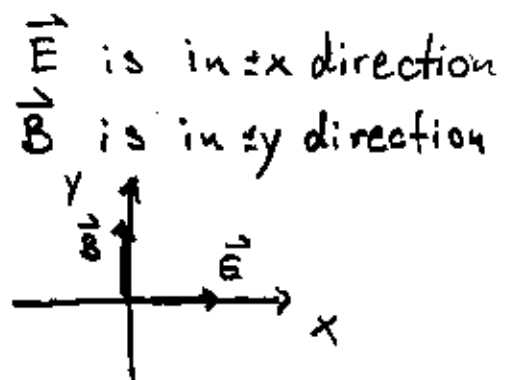 E is in ±x direction
B is in ±y direction
y
B
E
x